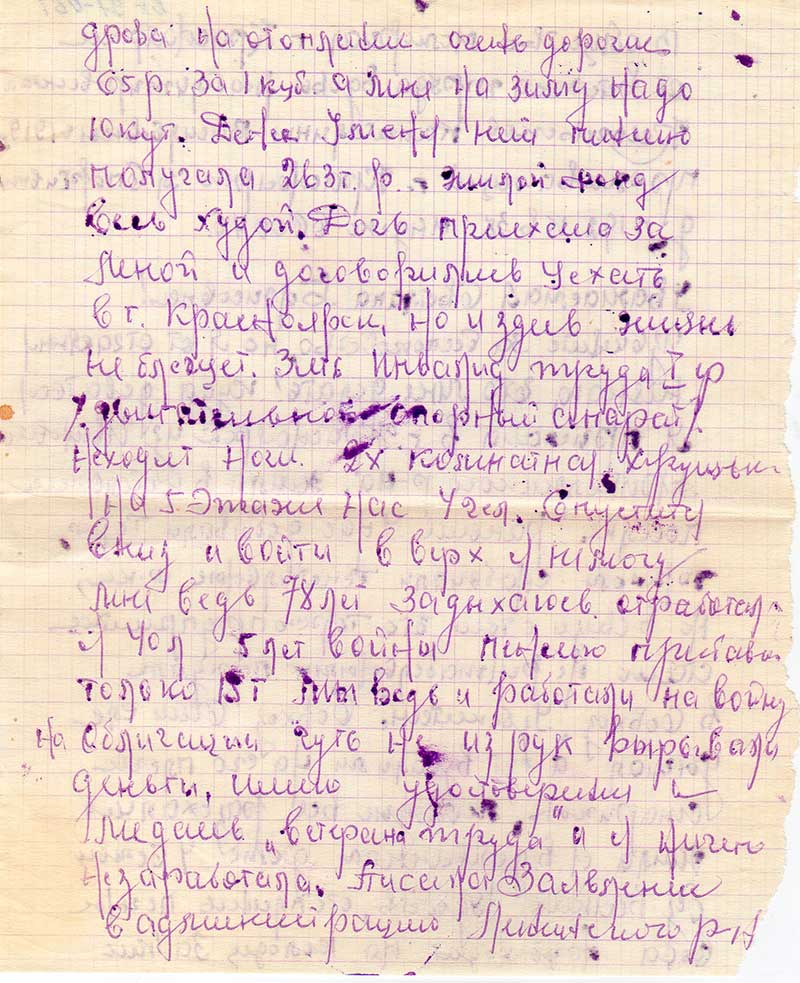 дрова на отопление очень дорогие
65р за 1 куб а мне на зиму надо
10 куб. Денег у меня нет пенсию
получала 263 т. р. - жилой фонд
весь худой. Дочь приехала за
мной и договорились уехать
в г. Красноярск, но и здесь жизнь
не блещет. Зять инвалид труда I гр
двигательной опорный апарат
неходит ноги. 2х комнатная хрущевк
На 5 Этаже Нас 4 чел. Спустится
вниз и войти в верх я немогу
мне ведь 78 лет задыхаюсь отработал
я 40л 5 лет войны пенсию прибави
толоко 15т мы ведь и работали на войну
на облигации чуть не из рук вырывали
деньги. имею удостоверение и
медаль "ветерана труда" а я ничего
незаработала. Писала Заявление
в администрацию р-на